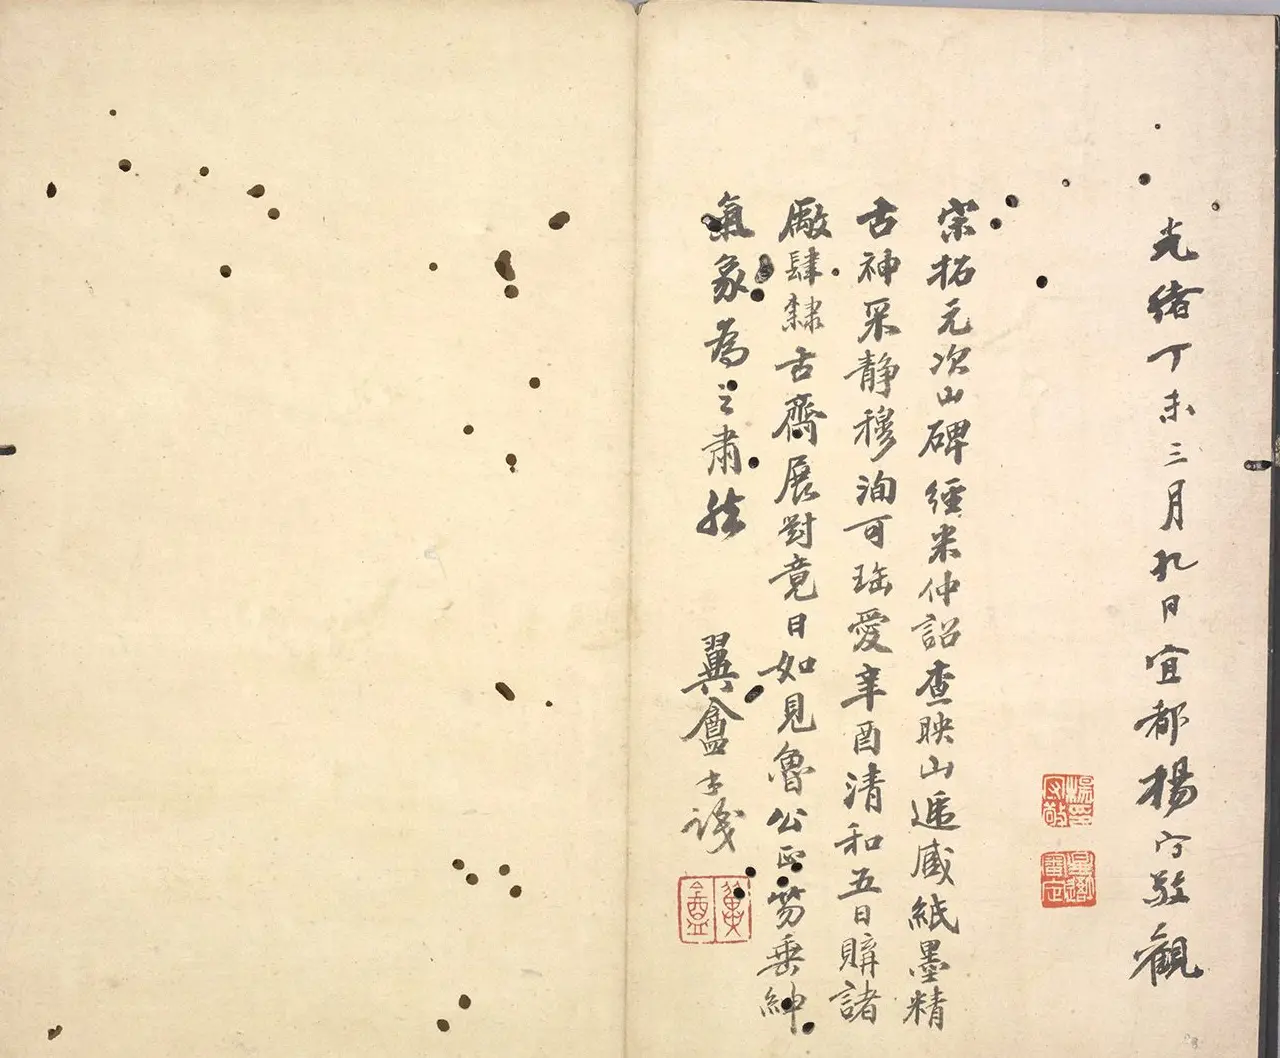 光緒丁未三月九日宜都楊守敬觀
楊守敬印
星吾審定
宋拓元次山碑經米仲詔查映山遞藏紙墨精
古神采静穆洵可珤愛辛酉清和五日購諸
廠肆隸古齋展對竟日如見魯公正笏垂紳
氣象為之肅然
翼盦書識
翼盦